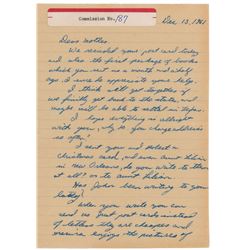 Commission No. 187
Dec 13, 1961
Dear mother,
We received your post card today
and also the first package of books
which you sent us a month and a half
ago. I sure do appreciate your help.
I think we'll get together if
we finally get back to the states, and
maybe we'll be able to settle in Texas.
I hope everything is allright
with you, why do you change address
so often?
I sent you and Robert a
Christmas card, and even aunt Lillian
in New Orleans, do you write to them
at all? or to aunt Lillian.
Has John been writing to you
lately?
When you write you can
send us just post cards instead of
letters they are cheaper and
Marina enjoys the pictures of